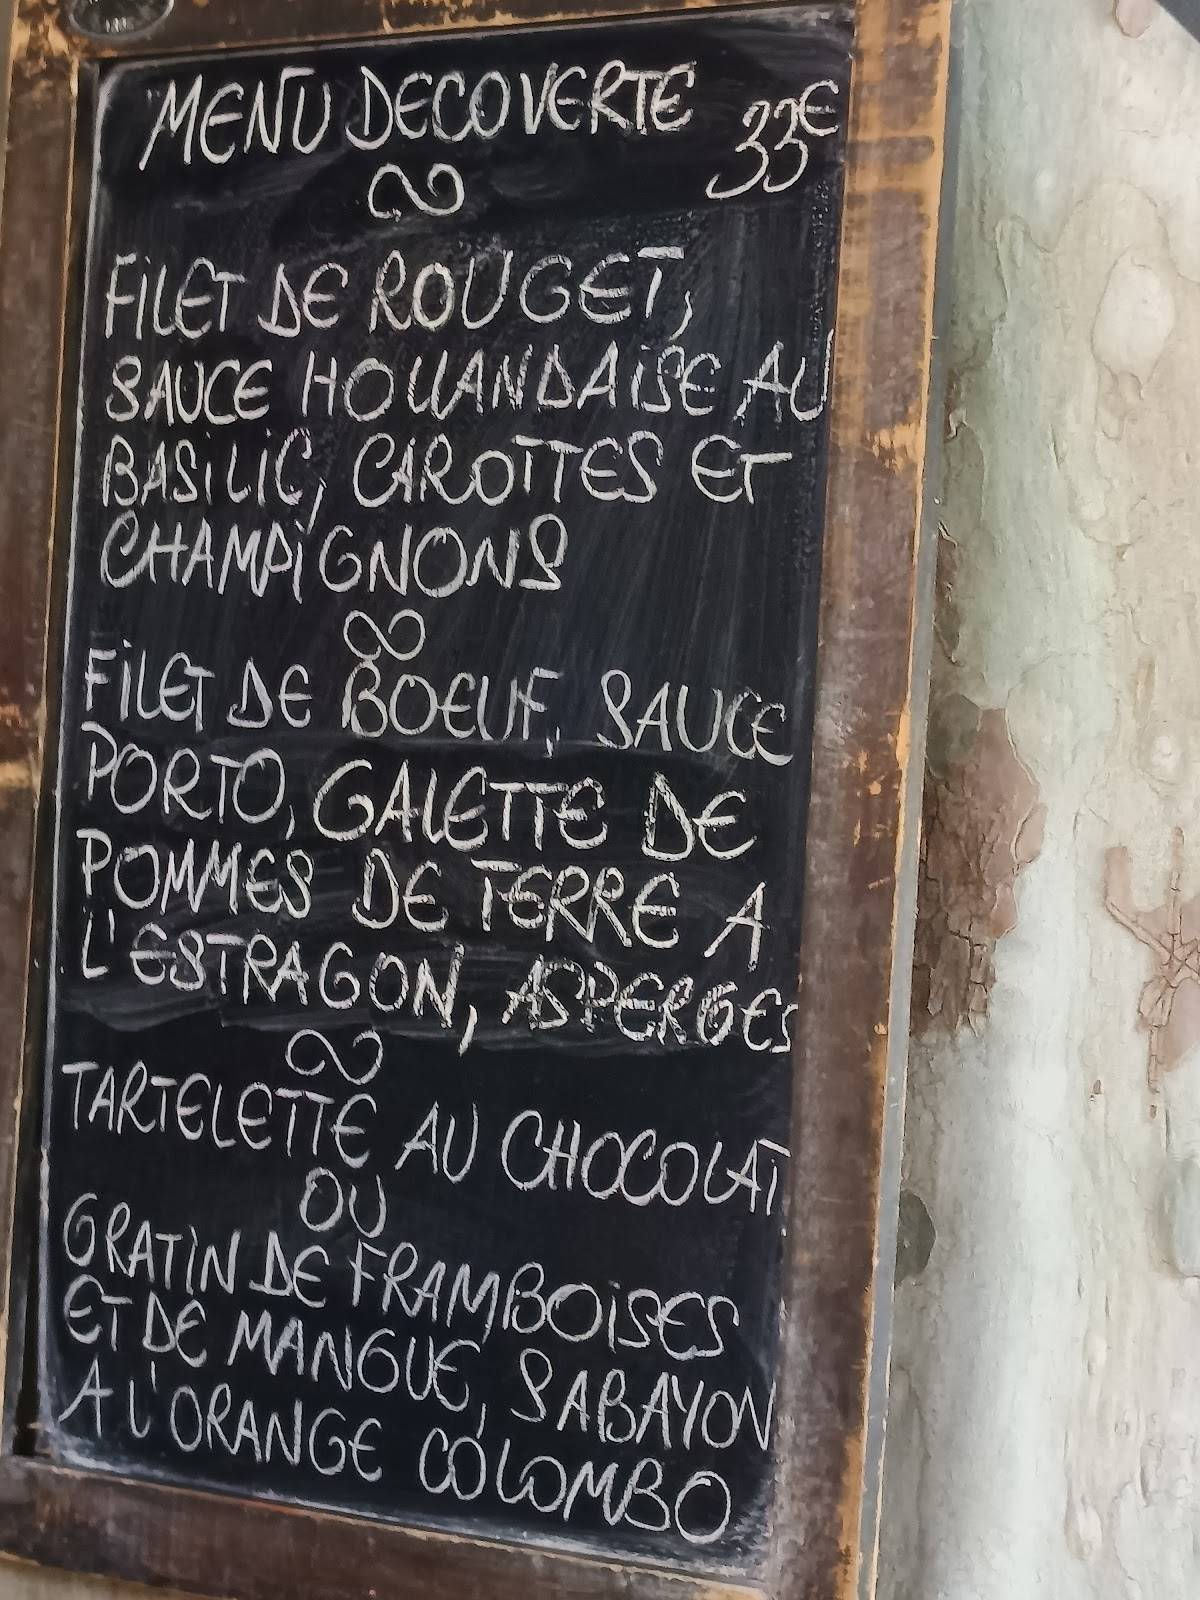 MENU DECOVERTE 33€
FILET DE ROUGET,
SAUCE HOLLANDAISE AU
BASILIC, CAROTTES ET
CHAMPIGNONS
FILET DE BOEUF, SAUCE
PORTO, GALETTE DE
POMMES DE TERRE A
L'ESTRAGON, ASPERGES
TARTELETTE AU CHOCOLAT
OU
GRATIN DE FRAMBOISES
ET DE MANGUE, SABAYON
A L'ORANGE COLOMBO